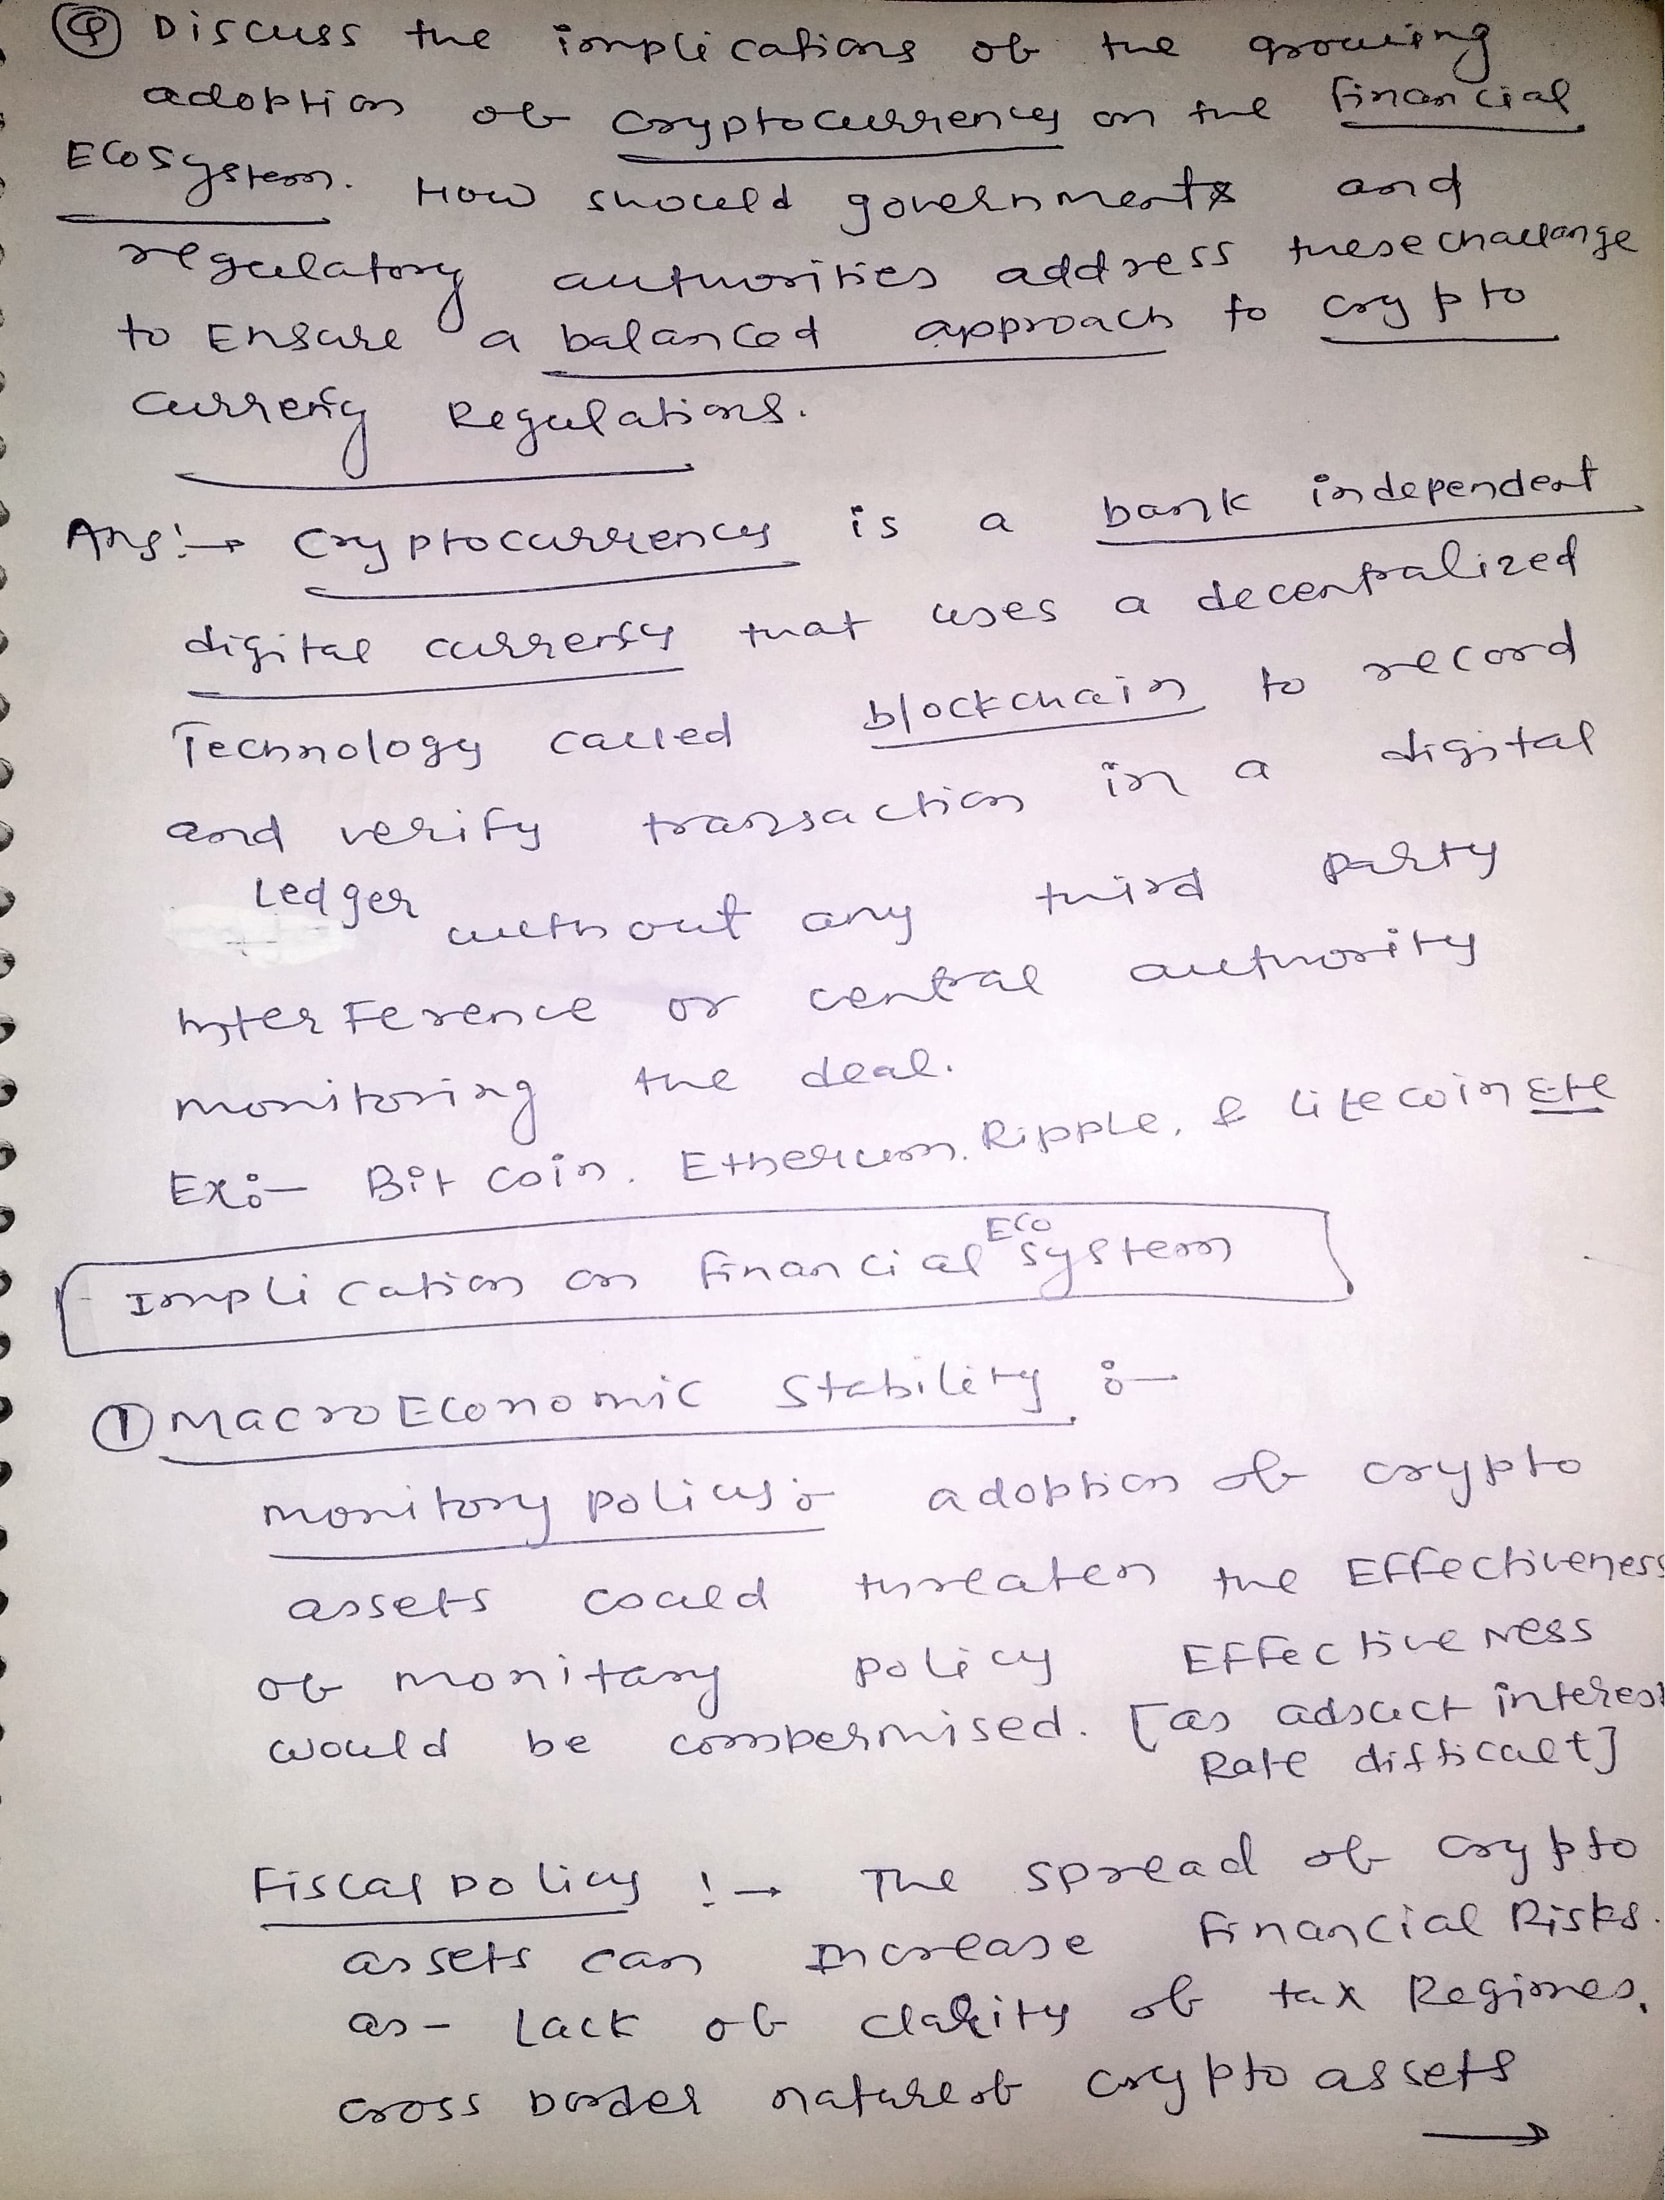 Q Discuss the implications of the growing
adoption of cryptocurrency on the financial
Ecosystem. How should governments and
regulatory authorities address these challange
to Ensure a balanced approach to crypto
currency Regulations.
Ans:→ Cryptocurrency is a bank independent
digital currency that uses a decentralized
Technology called blockchain to record
and verify transaction in a digital
Ledger without any third party
Interference or central authority
monitoring the deal.
Ex:- Bit coin, Etherium, Ripple, & Litecoin Etc
Implication on financial Eco system
① Macro Economic Stability :-
monitory policy: adoption of crypto
assets could threaten the Effectiveness
of monitary policy Effectiveness
would be compermised. [as adjuct interest
Rate difficult]
Fiscal policy :→ The spread of crypto
assets can Increase Financial Risks.
as - Lack of clarity of tax Regimes,
cross border nature of crypto assets
→